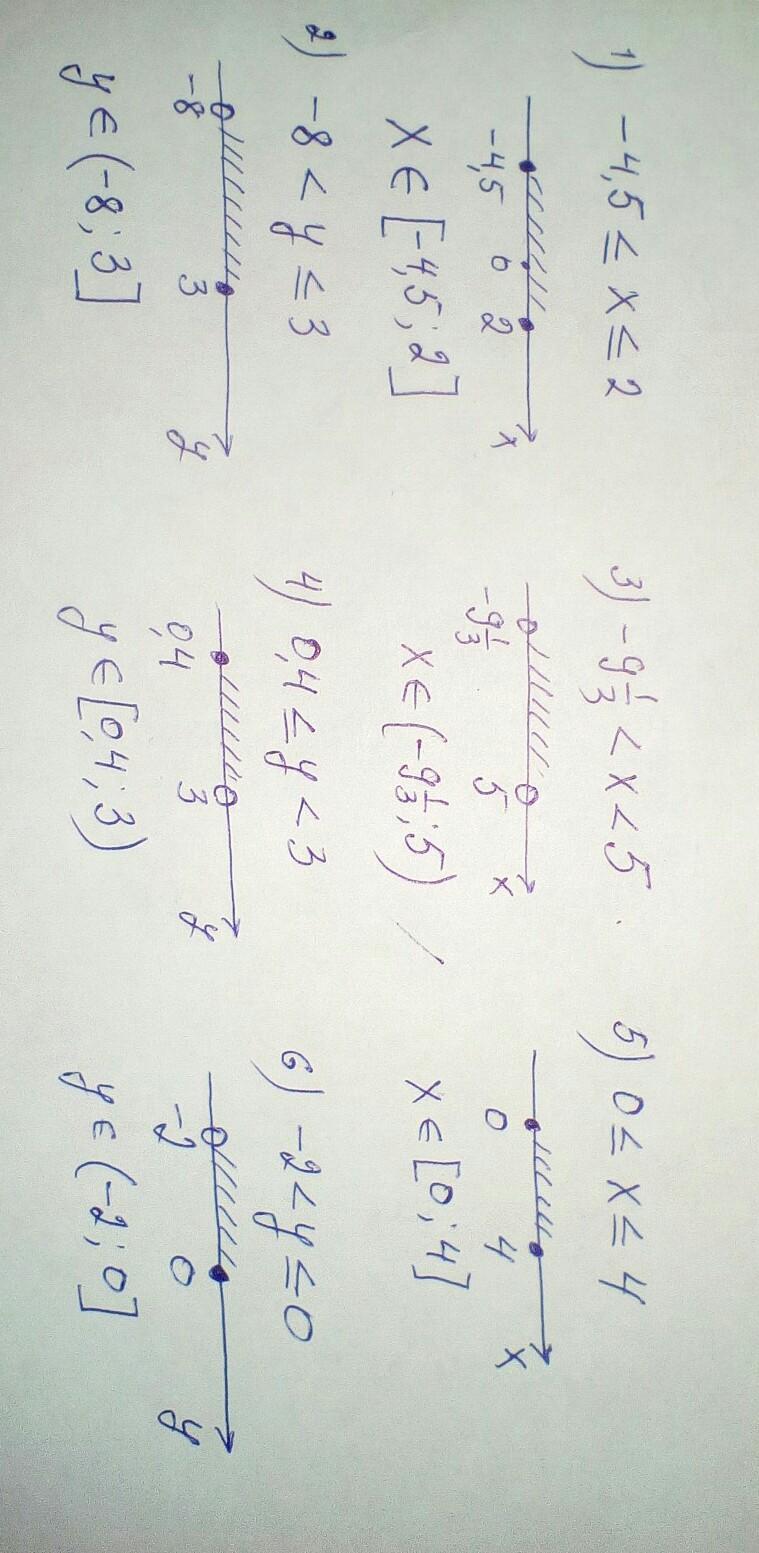 1) -4,5 ≤ x ≤ 2
-4,5 0 2 x
x ∈ [-4,5; 2]
2) -8 < y ≤ 3
-8 3 y
y ∈ (-8; 3]
3) -9 1/3 < x < 5
-9 1/3 5 x
x ∈ (-9 1/3; 5)
4) 0,4 ≤ y < 3
0,4 3 y
y ∈ [0,4; 3)
5) 0 ≤ x ≤ 4
0 4 x
x ∈ [0; 4]
6) -2 < y ≤ 0
-2 0 y
y ∈ (-2; 0]